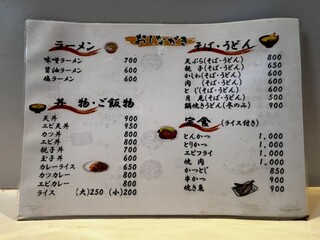 おしながき
ラーメン
味噌ラーメン 700
醤油ラーメン 600
塩ラーメン 600
丼物・ご飯物
天丼 900
エビ天丼 950
カツ丼 800
エビ丼 800
親子丼 700
玉子丼 600
カレーライス 650
カツカレー 800
エビカレー 800
ライス (大)250 (小)200
そば・うどん
天ぷら(そば・うどん) 800
親子(そば・うどん) 650
かしわ(そば・うどん) 600
肉(そば・うどん) 600
とじ(そば・うどん) 600
月見(そば・うどん) 500
鍋焼きうどん(冬のみ) 900
定食 (ライス付き)
とんかつ 1,000
とりかつ 1,000
エビフライ 1,000
焼肉 1,000
かつとじ 850
串かつ 900
焼き魚 900